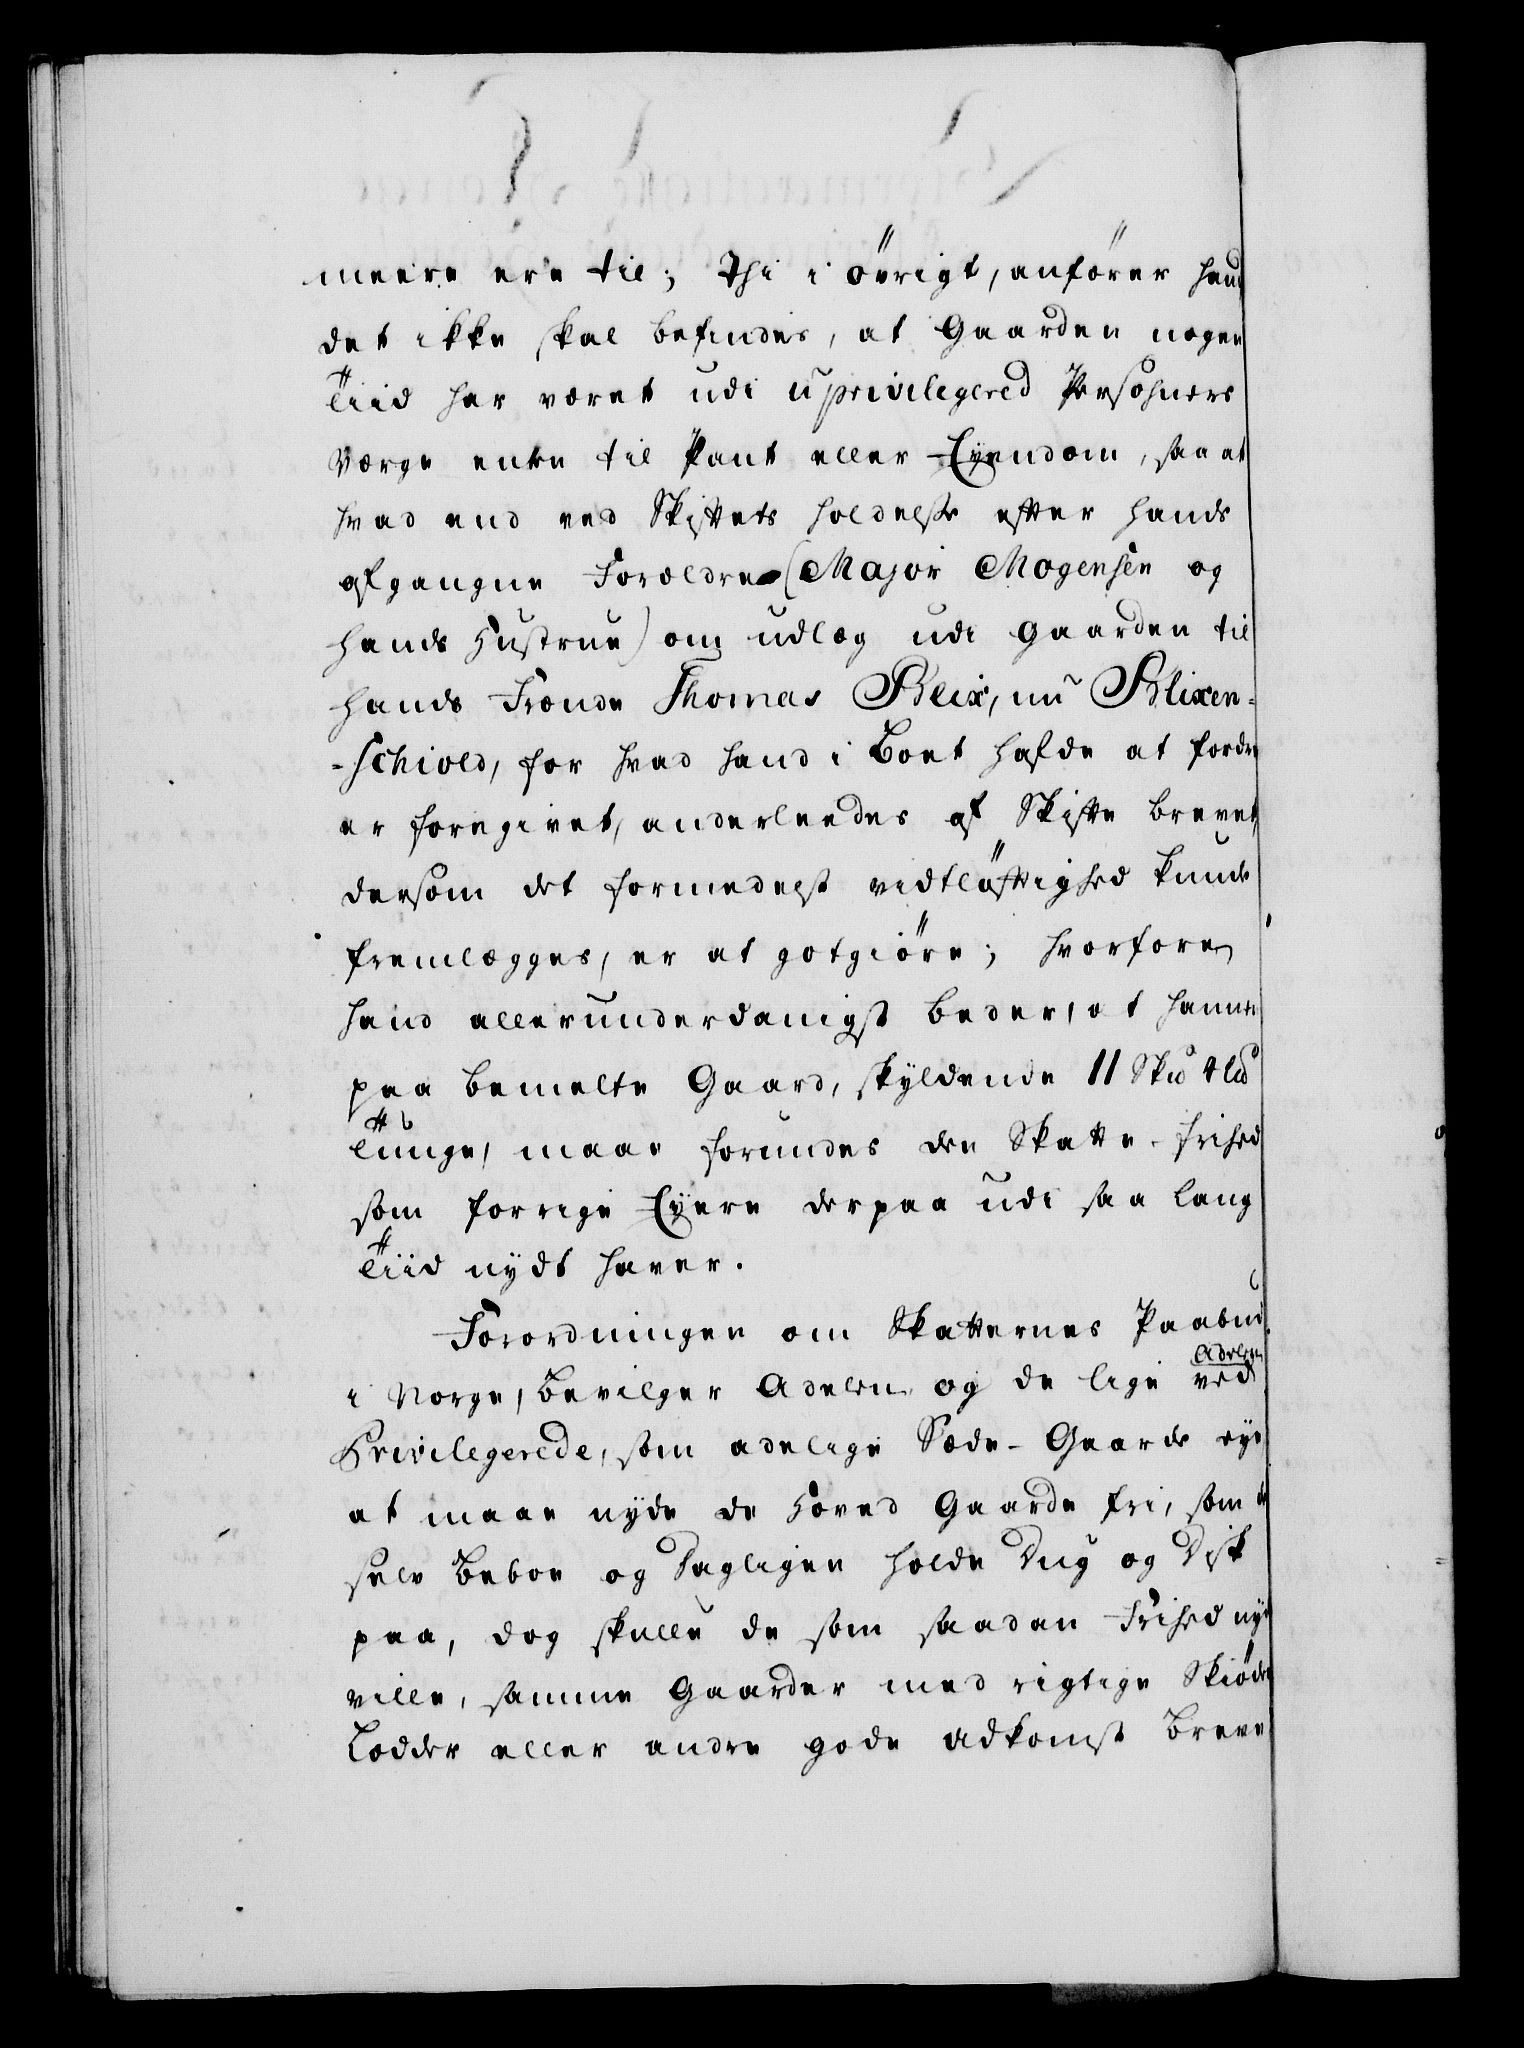 meere ere til; Thi i øvrigt, anfører hand
det ikke skal befindes, at Gaarden nogen
Tiid har været udi uprivilegered Persohners
Værge enten til Pant eller Eyendom, saa at
hvad end ved Skiftets holdelse efter hands
afgangne Forældre (Major Mogensen og
hands Hustrue) om udlæg udi Gaarden til
hands Frænde Thomas Blix, nu Blixen-
-schiold, for hvad hand i Boet hafde at fordre
er foregivet, anderleedes af Skifte brevet,
dersom det formedelst vidtløftighed kunde
fremlægges, er at gotgiøre; hvorfore
hand allerunderdanigst beder, at hanem
paa bemelte Gaard, skyldende 11 Skud 4 lud
Tunge, maae forundes den Skatte-frihed
som forrige Eyere derpaa udi saa lang
Tiid nydt haver.
Forordningen om Skatternes Paabud
i Norge, bevilger Adelen og de lige ved Adelen
Privilegerede, som adelige Sæde-Gaarde eye
at maae nyde de Hoved Gaarde fri, som de
selv beboe og Dagligen holde Dug og Disk
paa, dog skulle de som saadan Frihed nyde
ville, samme Gaarder med rigtige Skiøder
Lodder eller andre gode Adkomst Breve